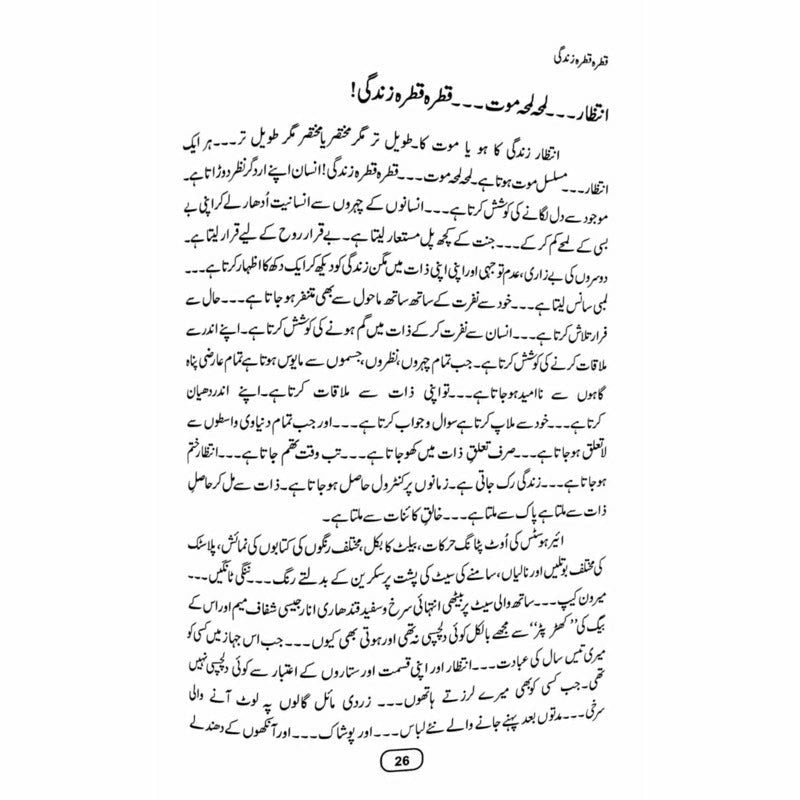 قطرہ قطرہ زندگی
انتظار۔۔۔لمحہ لمحہ موت۔۔۔قطرہ قطرہ زندگی!
انتظار زندگی کا ہو یا موت کا۔طویل تر مگر مختصر یا مختصر مگر طویل تر۔۔۔ہر ایک
انتظار۔۔۔مسلسل موت ہوتا ہے۔لمحہ لمحہ موت۔۔۔قطرہ قطرہ زندگی!انسان اپنے اردگرنظر دوڑاتا ہے۔
موجود سے دل لگانے کی کوشش کرتا ہے۔۔۔انسانوں کے چہروں سے انسانیت اُدھار لے کر اپنی بے
بسی کے لمحے کم کر کے۔۔۔جنت کے کچھ پل مستعار لیتا ہے۔بے قرار روح کے لیے قرار لیتا ہے۔
دوسروں کی بے زاری،عدم توجہی اور اپنی اپنی ذات میں مگن زندگی کو دیکھ کر ایک دکھ کا اظہار کرتا ہے۔۔۔
لمبی سانس لیتا ہے۔۔۔خود سے نفرت کے ساتھ ساتھ ماحول سے بھی متنفر ہو جاتا ہے۔۔۔حال سے
فرار تلاش کرتا ہے۔۔۔انسان سے نفرت کر کے ذات میں گم ہونے کی کوشش کرتا ہے۔اپنے اندر سے
ملاقات کرنے کی کوشش کرتا ہے۔جب تمام چہروں،نظروں،جسموں سے مایوس ہوتا ہے تمام عارضی پناہ
گاہوں سے ناامید ہو جاتا ہے۔۔۔تو اپنی ذات سے ملاقات کرتا ہے۔اپنے اندر دھیان
کرتا ہے۔۔۔خود سے ملاپ کرتا ہے سوال و جواب کرتا ہے۔۔۔اور جب تمام دنیاوی واسطوں سے
لاتعلق ہو جاتا ہے۔۔۔صرف تعلقِ ذات میں کھو جاتا ہے۔۔۔تب وقت تھم جاتا ہے۔۔۔انتظار ختم
ہو جاتا ہے۔۔۔زندگی رک جاتی ہے۔زمانوں پر کنٹرول حاصل ہو جاتا ہے۔ذات سے مل کر حاصلِ
ذات سے ملتا ہے پاک سے ملتا ہے۔۔۔خالقِ کائنات سے ملتا ہے۔
ائیر ہوسٹس کی اُوٹ پٹانگ حرکات،بیلٹ کا بکل،مختلف رنگوں کی کتابوں کی نمائش،پلاسٹک
کی مختلف بوتلیں اور نالیاں،سامنے کی سیٹ کی پشت پر سکرین کے بدلتے رنگ۔۔۔ننگی ٹانگیں۔۔۔
میرون کیپ۔۔۔ساتھ والی سیٹ پر بیٹھی انتہائی سرخ و سفید قندھاری انار جیسی شفاف میم اور اس کے
بیگ کی’’کھڑ پڑ‘‘سے مجھے بالکل کوئی دلچسپی نہ تھی اور ہوتی بھی کیوں۔۔۔جب اس جہاز میں کسی کو
میری تیس سال کی عبادت۔۔۔انتظار اور اپنی قسمت اور ستاروں کے اعتبار سے کوئی دلچسپی نہیں
تھی۔جب کسی کو بھی میرے لرزتے ہاتھوں۔۔۔زردی مائل گالوں پہ لوٹ آنے والی
سرخی۔۔۔مدتوں بعد پہنے جانے والے نئے لباس۔۔۔اور پوشاک۔۔۔اور آنکھوں کے دھندلے
26